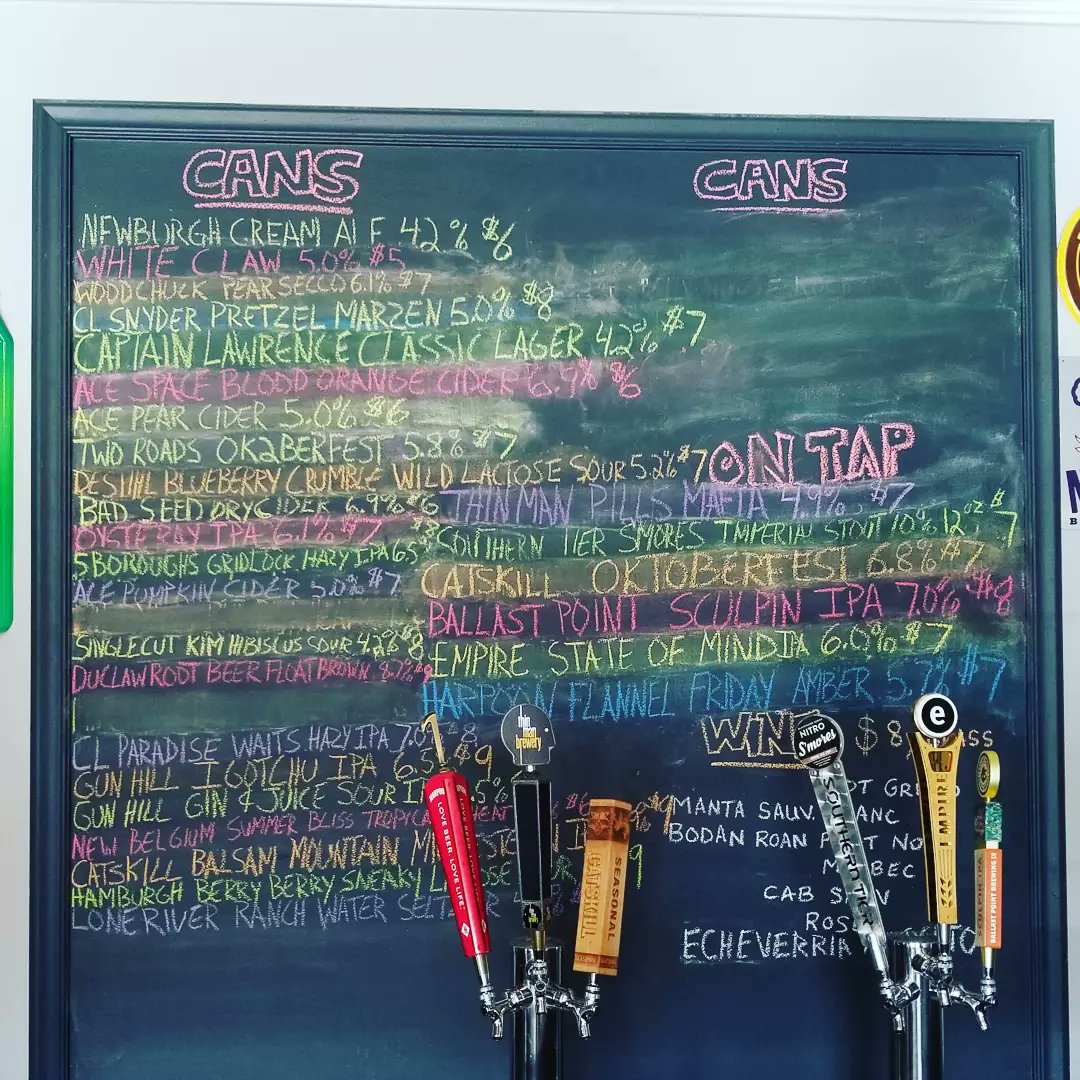 CANS
NEWBURGH CREAM ALE 4.2% $6
WHITE CLAW 5.0% $5
WOODCHUCK PEARSECCO 6.1% $7
CL SNYDER PRETZEL MARZEN 5.0% $8
CAPTAIN LAWRENCE CLASSIC LAGER 4.2% $7
ACE SPACE BLOOD ORANGE CIDER 6.9% $6
ACE PEAR CIDER 5.0% $6
TWO ROADS OK2BERFEST 5.8% $7
DESIHL BLUEBERRY CRUMBLE WILD LACTOSE SOUR 5.2% $7
BAD SEED DRY CIDER 6.9% $6
OYSTERBAY IPA 6.1% $7
5BOROUGHS GRIDLOCK HAZY IPA 6.5% $8
ACE PUMPKIN CIDER 5.0% $7
SINGLECUT KIM HIBISCUS SOUR 4.2% $8
DUCLAW ROOT BEER FLOAT BROWN 8.7% $9
CL PARADISE WAITS HAZY IPA 7.0% $8
GUN HILL I GOTCHU IPA 6.5% $9
GUN HILL GIN & JUICE SOUR
NEW BELGIUM SUMMER BLISS TROPICAL
CATSKILL BALSAM MOUNTAIN $9
HAMBURGH BERRY BERRY SNEAKY
LONE RIVER RANCH WATER SELTZER
CANS
ON TAP
THIN MAN PILLS MAFIA 4.9% $7
SOUTHERN TIER S'MORES IMPERIAL STOUT 10% 12oz $7
CATSKILL OKTOBERFEST 6.8% $7
BALLAST POINT SCULPIN IPA 7.0% $8
EMPIRE STATE OF MIND IPA 6.0% $7
HARPOON FLANNEL FRIDAY AMBER 5.7% $7
WIN $8
MANTA SAUV. ANC
BODAN ROAN
CAB
ROS
ECHEVERRIA
LOVE BEER. LOVE LIFE.
thin man brewery
SEASONAL
CATSKILL
NITRO
S'mores
SOUTHERN TIER
e
EMPIRE
SCULPIN IPA
BALLAST POINT BREWING CO